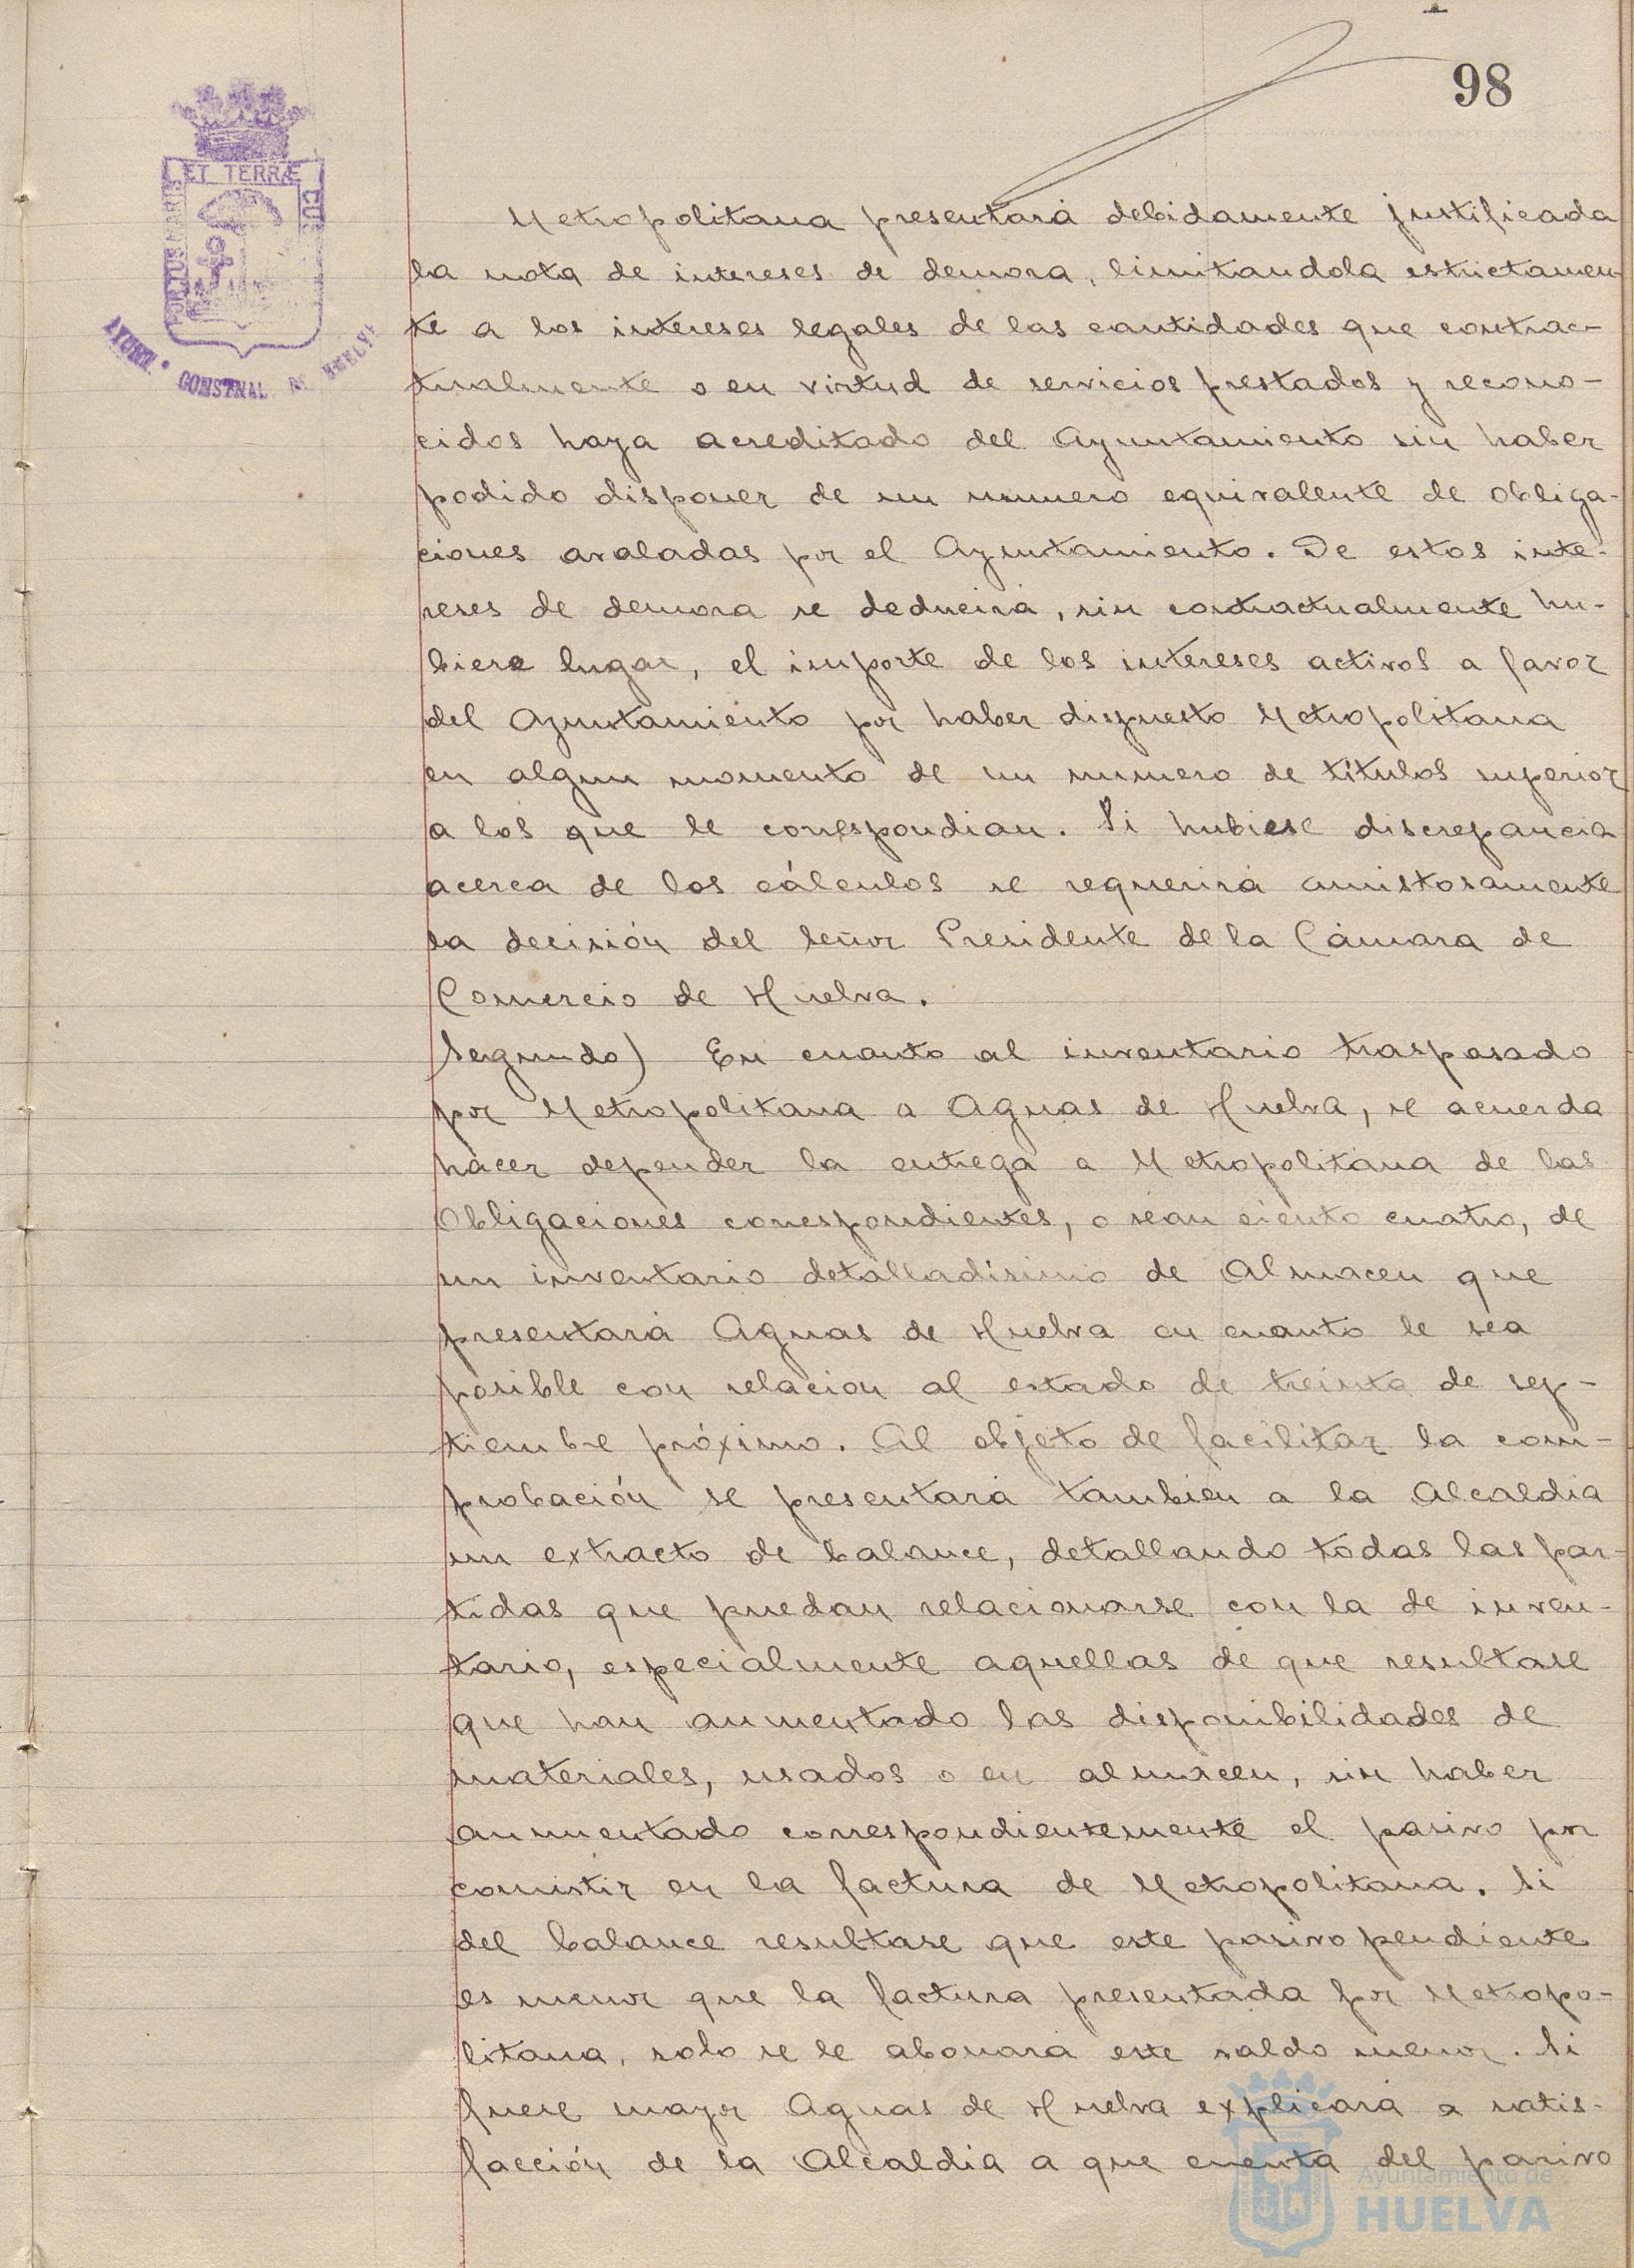 98
ET TERRÆ
CUS
PORTUS MARIS
AYUNT. CONSTNAL DE HUELVA
Metropolitana presentará debidamente justificada
la nota de intereses de demora, limitandola estrictamen-
te a los intereses legales de las cantidades que contrac-
tualmente o en virtud de servicios prestados y recono-
cidos haya acreditado del Ayuntamiento sin haber
podido disponer de un numero equivalente de obliga-
ciones avaladas por el Ayuntamiento. De estos inte-
reses de demora se deducirá, sin contractualmente hu-
biera lugar, el importe de los intereses activos a favor
del Ayuntamiento por haber dispuesto Metropolitana
en algun momento de un numero de títulos superior
a los que le correspondian. Si hubiese discrepancia
acerca de los cálculos se requerirá amistosamente
la decisión del Señor Presidente de la Cámara de
Comercio de Huelva.
Segundo) En cuanto al inventario traspasado
por Metropolitana a Aguas de Huelva, se acuerda
hacer depender la entrega a Metropolitana de las
Obligaciones correspondientes, o sean ciento cuatro, de
un inventario detalladísimo de Almacen que
presentará Aguas de Huelva en cuanto le sea
posible con relacion al estado de treinta de sep-
tiembre próximo. Al objeto de facilitar la com-
probación se presentará tambien a la Alcaldia
un extracto de balance, detallando todas las par-
tidas que puedan relacionarse con la de inven-
tario, especialmente aquellas de que resultase
que han aumentado las disponibilidades de
materiales, usados o en almacen, sin haber
aumentado correspondientemente el pasivo por
consistir en la factura de Metropolitana. Si
del balance resultase que este pasivo pendiente
es menor que la factura presentada por Metropo-
litana, solo se le abonará este saldo menor. Si
fuese mayor Aguas de Huelva explicará a satis-
facción de la Alcaldia a que cuenta del pasivo
Ayuntamiento de
HUELVA